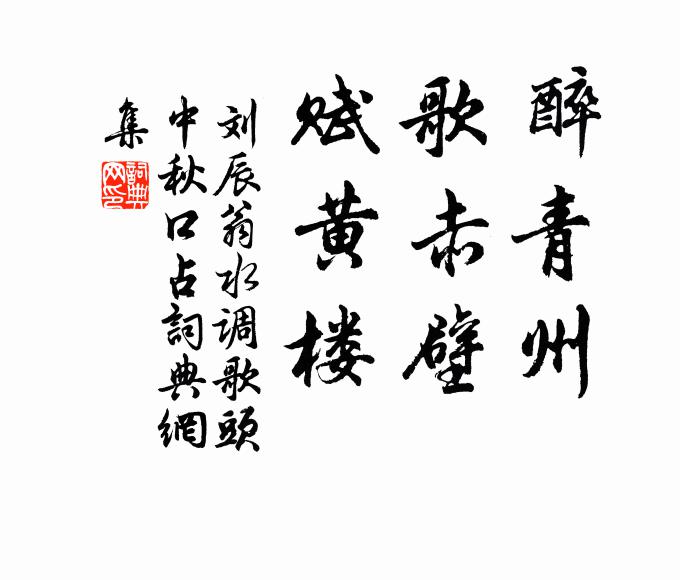 醉青州
歌赤壁
赋黄楼
刘辰翁水调歌頭
中秋口占詞典網
集
詞典
网印